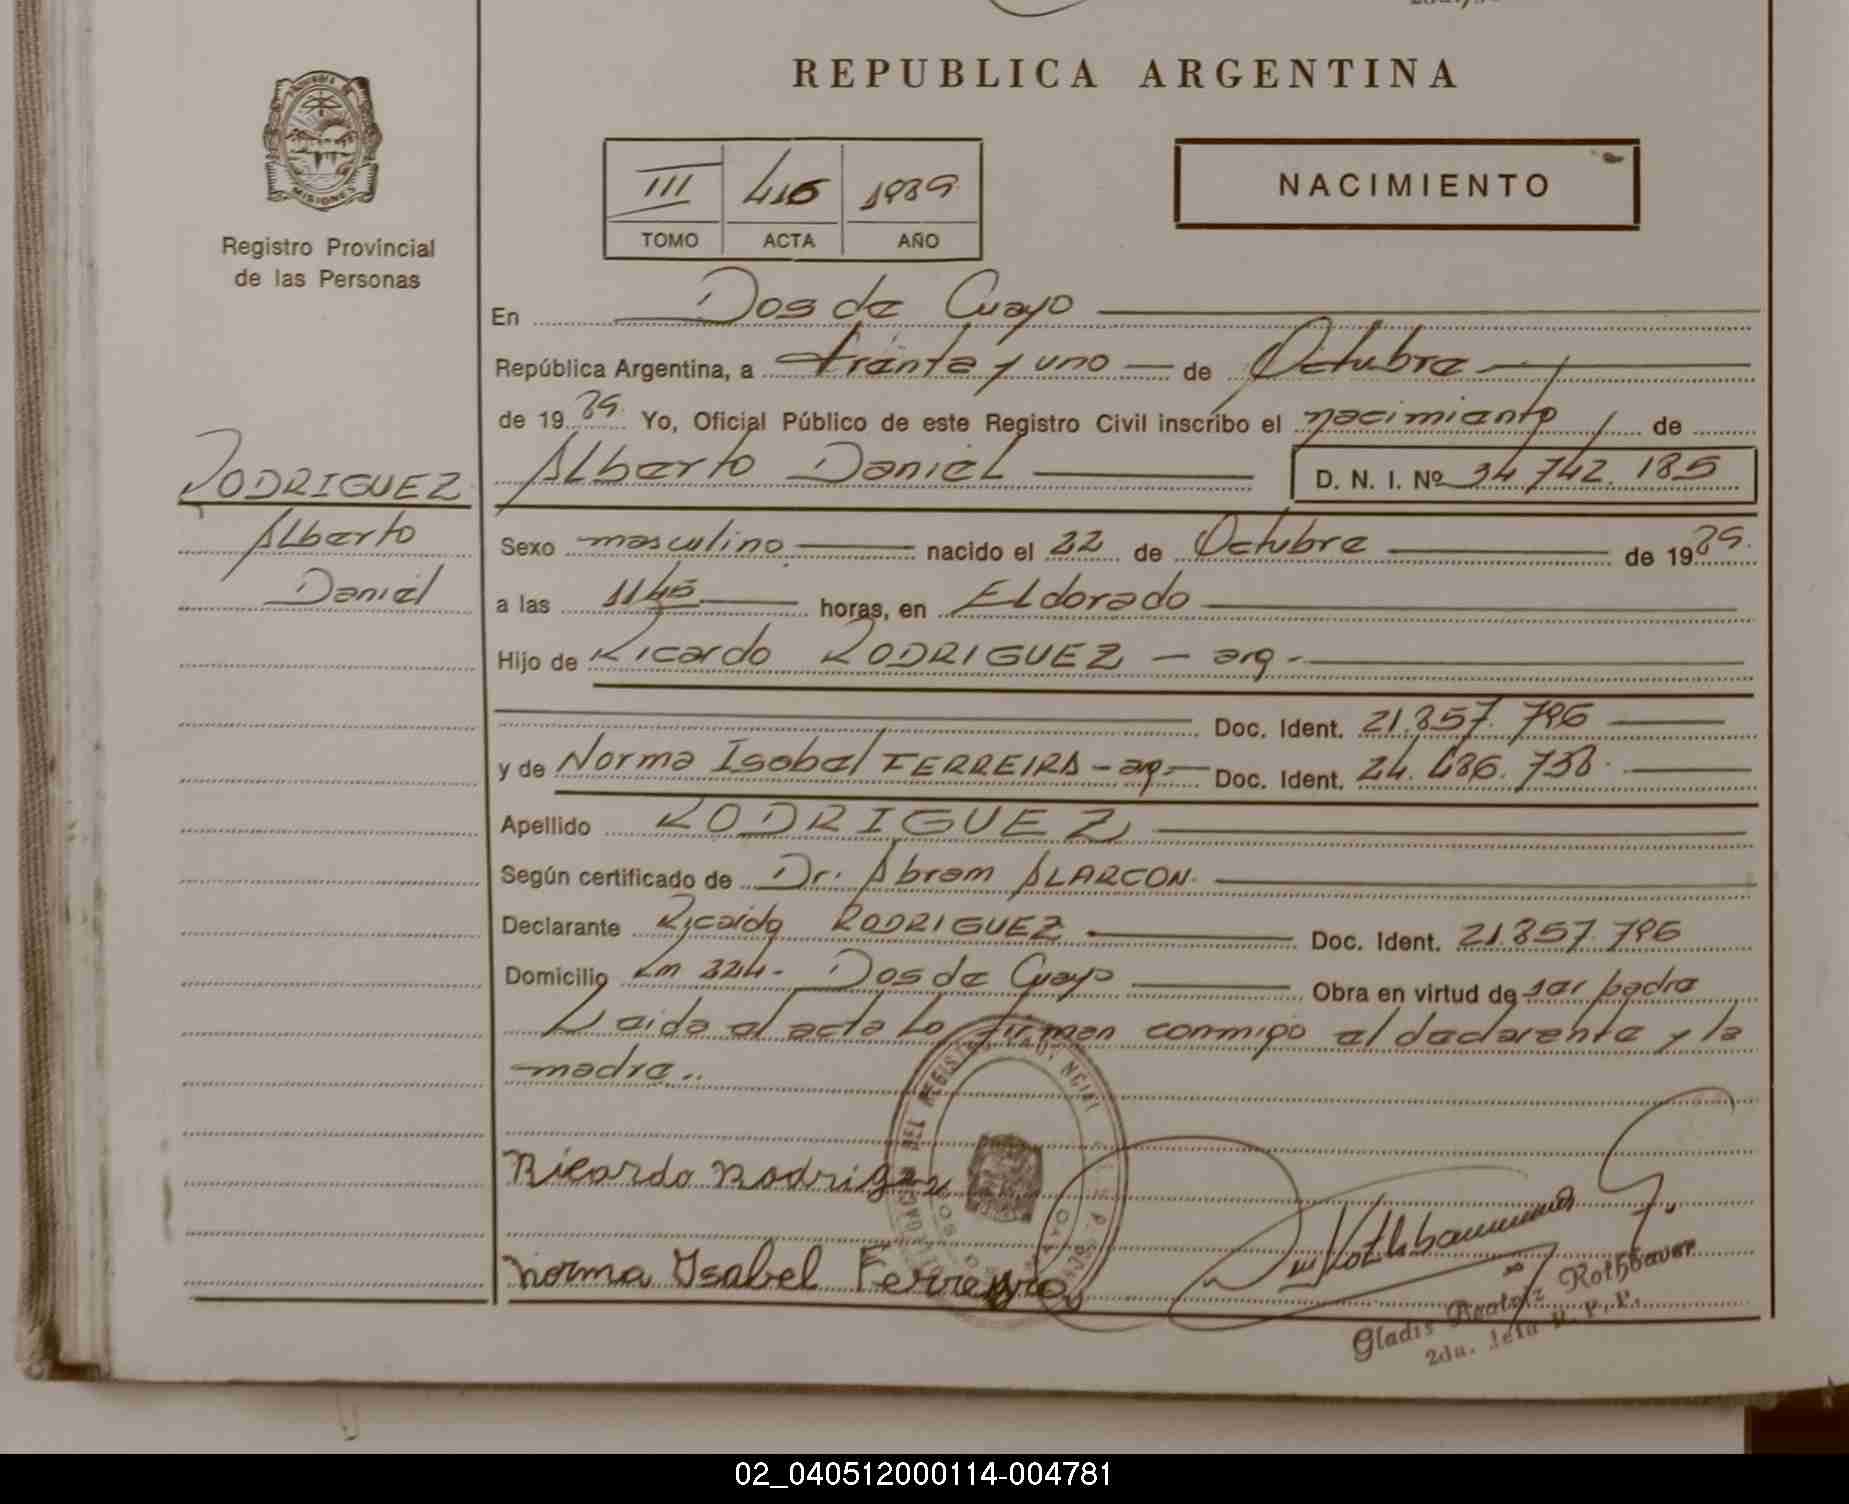 REPUBLICA ARGENTINA
MISIONES
Registro Provincial
de las Personas
III 416 1989
TOMO ACTA AÑO
NACIMIENTO
En Dos de Mayo
República Argentina, a treinta y uno de Octubre
de 1989. Yo, Oficial Público de este Registro Civil inscribo el nacimiento de
RODRIGUEZ
Alberto
Daniel
Alberto Daniel D. N. I. Nº 34.742.185
Sexo masculino nacido el 22 de Octubre de 1989.
a las 1145 horas, en Eldorado
Hijo de Ricardo RODRIGUEZ - arg -
Doc. Ident. 21.857.796
y de Norma Isabel FERREIRA - arg - Doc. Ident. 24.486.738
Apellido RODRIGUEZ
Según certificado de Dr. Abram ALARCON.
Declarante Ricardo RODRIGUEZ Doc. Ident. 21.857.796
Domicilio Km 224 - Dos de Mayo Obra en virtud de ser padre
Leida el acta lo firman conmigo el declarante y la
madre..
Ricardo Rodriguez
Norma Isabel Ferreyra
Gladis Beatriz Rothbauer
2da. Jefa R. P. P.
02_040512000114-004781